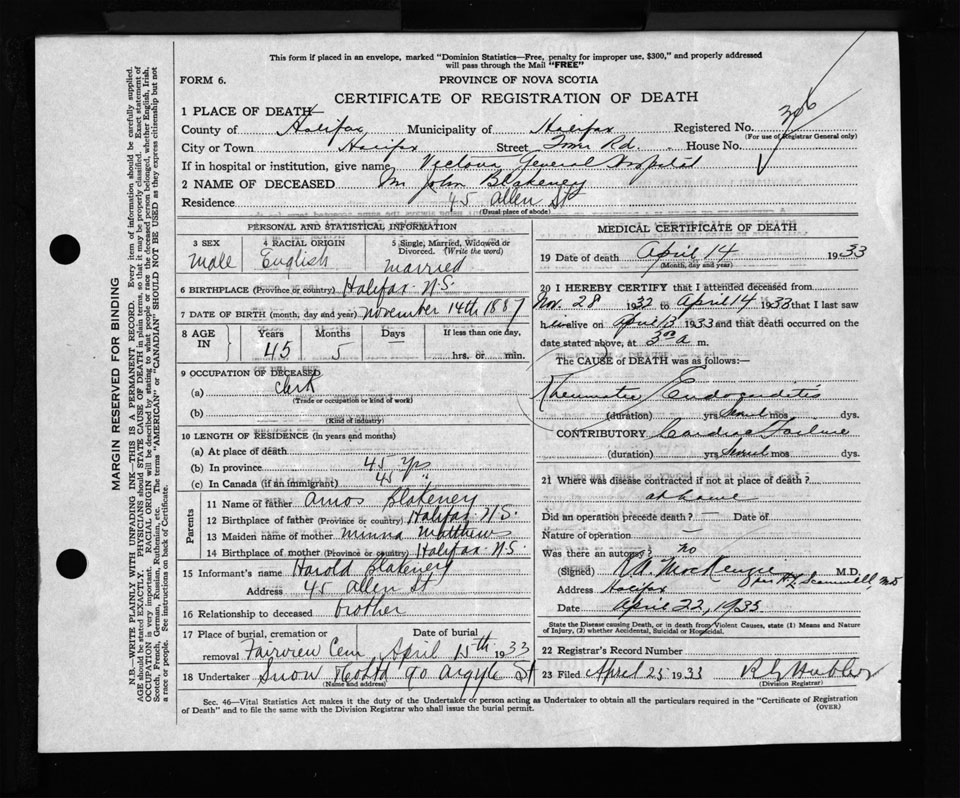 This form if placed in an envelope, marked "Dominion Statistics—Free, penalty for improper use, $300," and properly addressed
will pass through the Mail "FREE"
FORM 6.
PROVINCE OF NOVA SCOTIA
CERTIFICATE OF REGISTRATION OF DEATH
1 PLACE OF DEATH
County of Halifax Municipality of Halifax Registered No.
(For use of Registrar General only)
City or Town Halifax Street Tower Rd. House No.
If in hospital or institution, give name Victoria General Hospital
2 NAME OF DECEASED Mr John Blakeney
Residence 45 Allen St
(Usual place of abode)
PERSONAL AND STATISTICAL INFORMATION
3 SEX 4 RACIAL ORIGIN 5 Single, Married, Widowed or Divorced. (Write the word)
Male English Married
6 BIRTHPLACE (Province or country) Halifax N.S.
7 DATE OF BIRTH (month, day and year) November 14th 1887
8 AGE IN Years Months Days If less than one day,
45 5 — hrs. or min.
9 OCCUPATION OF DECEASED
(a) Clerk
(Trade or occupation or kind of work)
(b)
(Kind of industry)
10 LENGTH OF RESIDENCE (in years and months)
(a) At place of death
(b) In province 45 yrs
(c) In Canada (if an immigrant) 45 y.
Parents
11 Name of father Amos Blakeney
12 Birthplace of father (Province or country) Halifax N.S.
13 Maiden name of mother Minna Matthew
14 Birthplace of mother (Province or country) Halifax N.S.
15 Informant's name Harold Blakeney
Address 45 Allen St
16 Relationship to deceased brother
17 Place of burial, cremation or Date of burial
removal Fairview Cem April 15th 1933
18 Undertaker Snow 90 Argyle St
(Name and address)
MEDICAL CERTIFICATE OF DEATH
19 Date of death April 14 1933
(Month, day and year)
20 I HEREBY CERTIFY that I attended deceased from
Nov. 28 1932 to April 14 1933 that I last saw
h im alive on April 13 1933 and that death occurred on the
date stated above, at 3 a m.
The CAUSE of DEATH was as follows:—
Rheumatic Endocarditis
(duration) yrs. several mos dys.
CONTRIBUTORY Cardiac Failure
(duration) yrs. several mos dys.
21 Where was disease contracted if not at place of death?
at home
Did an operation precede death? — Date of
Nature of operation
Was there an autopsy? no
(Signed) MacKenzie M.D.
Address Halifax
Date April 22, 1933
State the Disease causing Death, or in death from Violent Causes, state (1) Means and Nature of Injury, (2) whether Accidental, Suicidal or Homicidal.
22 Registrar's Record Number
23 Filed April 25 1933
(Division Registrar)
Sec. 46—Vital Statistics Act makes it the duty of the Undertaker or person acting as Undertaker to obtain all the particulars required in the "Certificate of Registration
of Death" and to file the same with the Division Registrar who shall issue the burial permit. (OVER)
MARGIN RESERVED FOR BINDING
N.B.—WRITE PLAINLY WITH UNFADING INK—THIS IS A PERMANENT RECORD. Every item of information should be carefully supplied.
AGE should be stated EXACTLY. PHYSICIANS should STATE CAUSE OF DEATH in plain terms, so that it may be properly classified. Exact statement of
OCCUPATION is very important. RACIAL ORIGIN will be described by stating to what people or race the deceased person belonged, whether English, Irish,
Scotch, French, German, Russian, Ruthenian, etc. The terms "AMERICAN" or "CANADIAN" SHOULD NOT BE USED as they express citizenship but not
a race or people. See instructions on back of Certificate.